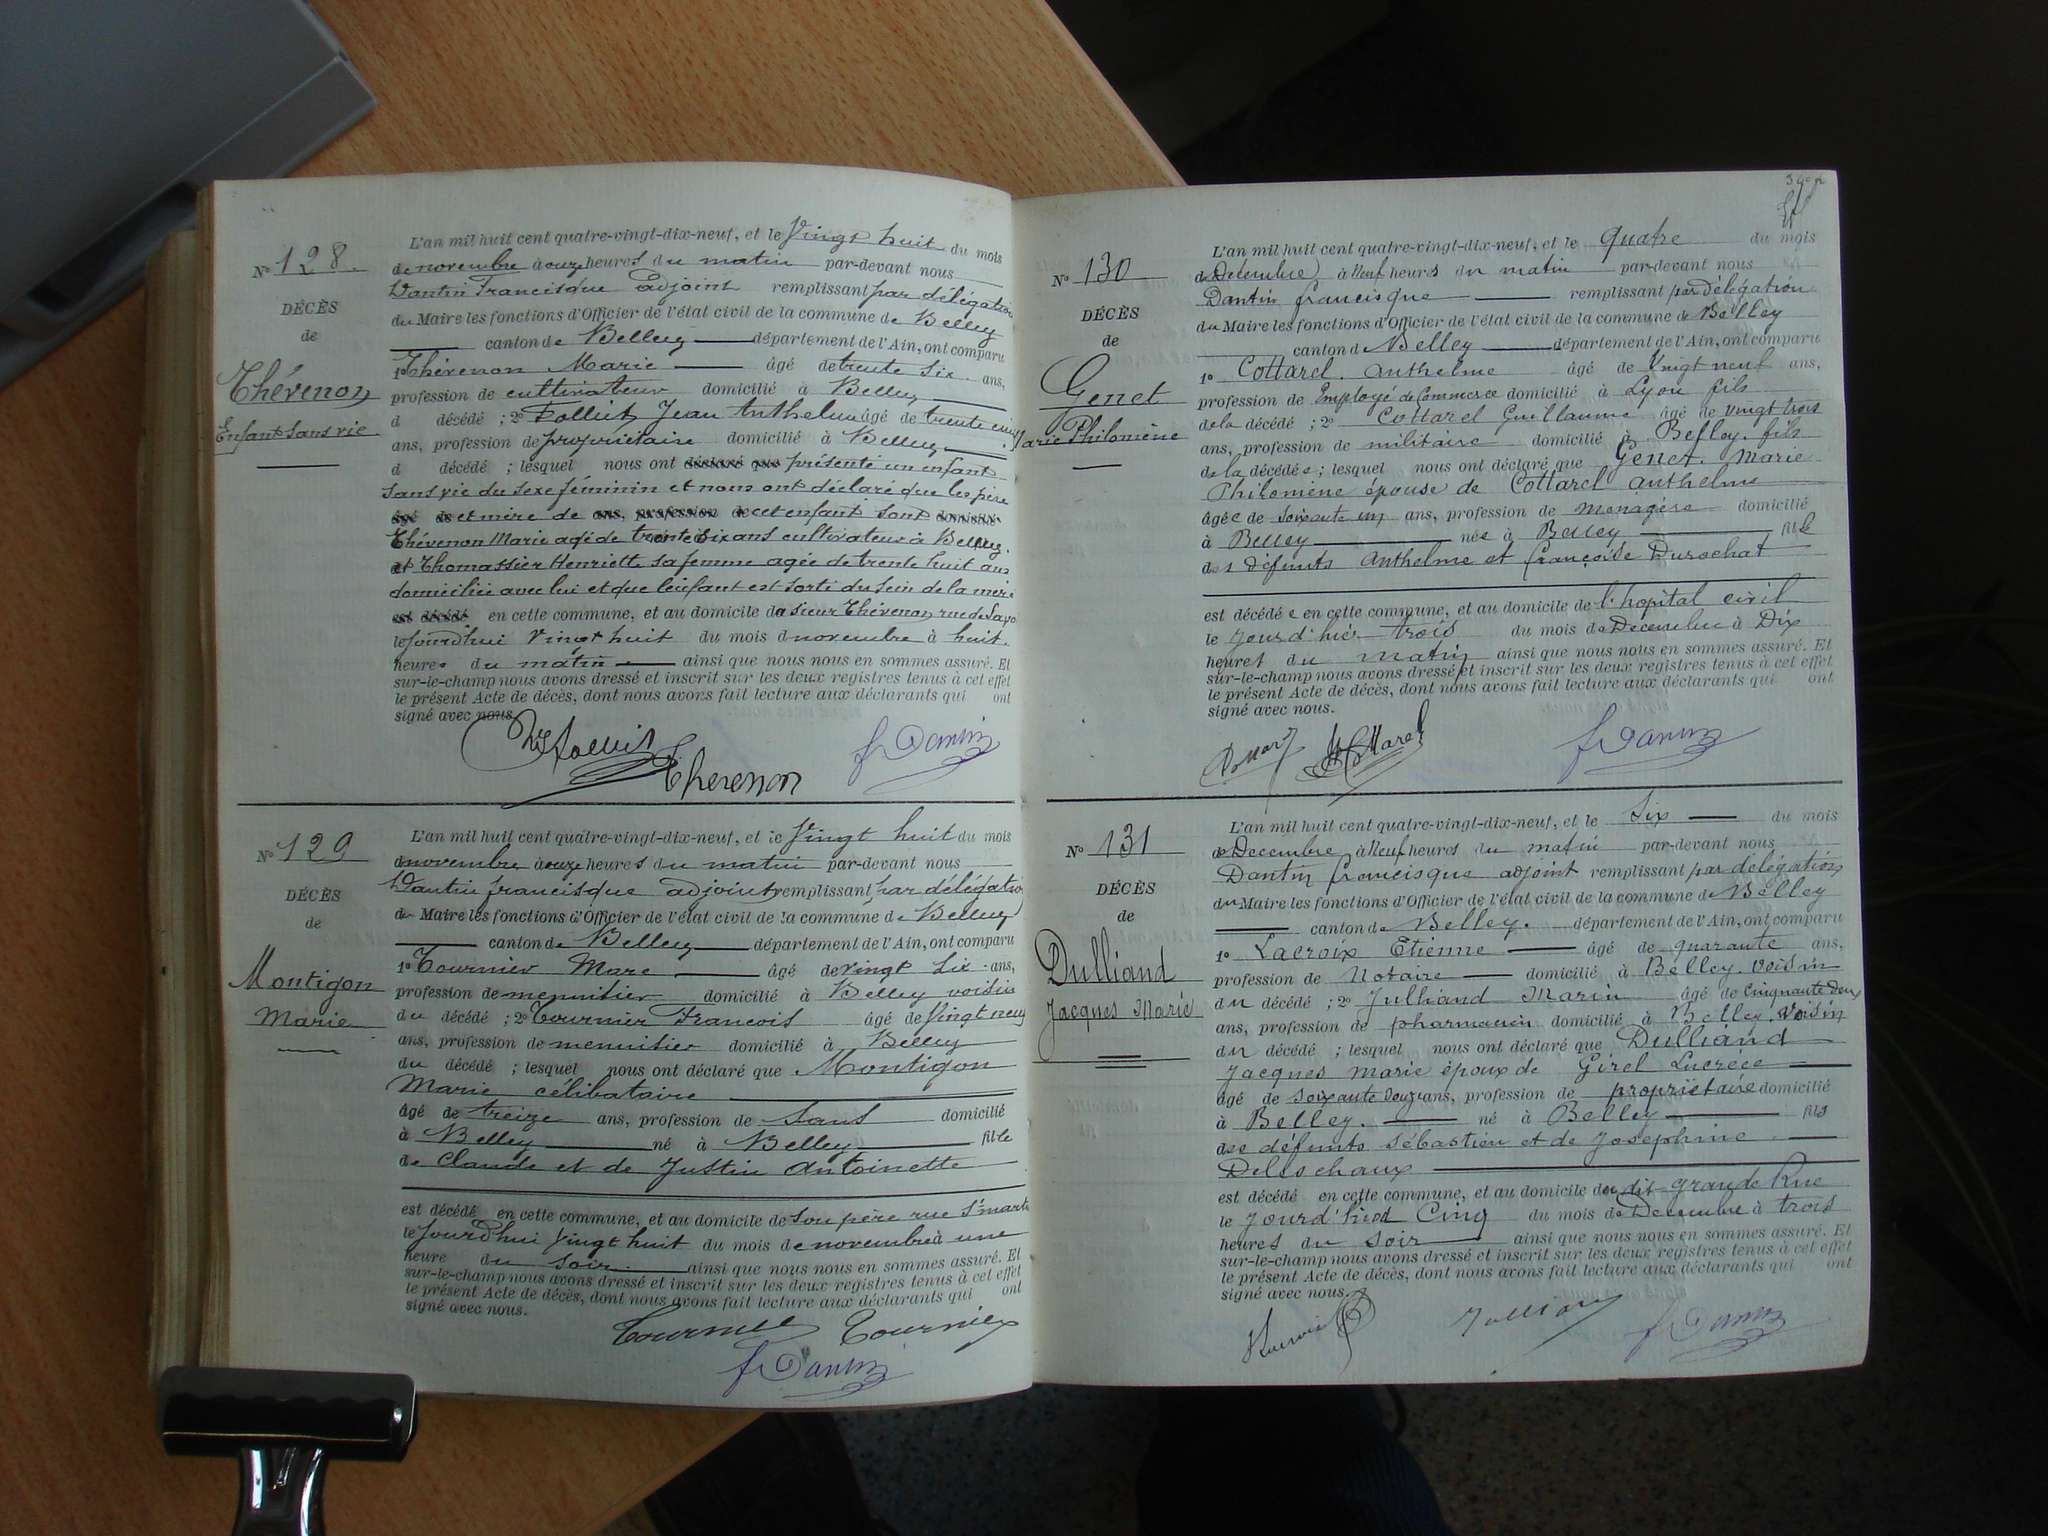 N° 128.
DÉCÈS
de
Thévenon
Enfant sans vie
L'an mil huit cent quatre-vingt-dix-neuf, et le Vingt huit du mois
de novembre à onze heures du matin par-devant nous
Dantin Francisque adjoint remplissant par délégation
du Maire les fonctions d'Officier de l'état civil de la commune de Belley
canton de Belley département de l'Ain, ont comparu
1° Thévenon Marie âgé de trente six ans,
profession de cultivateur domicilié à Belley
d décédé ; 2° Jean Anthelme âgé de trente cinq
ans, profession de propriétaire domicilié à Belley
d décédé ; lesquel nous ont déclaré que présenté un enfant
sans vie du sexe féminin et nous ont déclaré que les père
âgé de et mère de ans, profession de cet enfant sont domicilié
Thévenon Marie agé de trente six ans cultivateur à Belley.
et Thomassier Henriette sa femme agée de trente huit ans
domiciliée avec lui et que l'enfant est sorti du sein de la mère
est décédé en cette commune, et au domicile du sieur Thévenon, rue de
le jourd'hui vingt huit du mois de novembre à huit
heures du matin ainsi que nous nous en sommes assuré. Et
sur-le-champ nous avons dressé et inscrit sur les deux registres tenus à cet effet
le présent Acte de décès, dont nous avons fait lecture aux déclarants qui ont
signé avec nous.
Thevenon
F Dantin
N° 129
DÉCÈS
de
Montigon
Marie
L'an mil huit cent quatre-vingt-dix-neuf, et le Vingt huit du mois
de novembre à onze heures du matin par-devant nous
Dantin francisque adjoint remplissant par délégation
du Maire les fonctions d'Officier de l'état civil de la commune de Belley
canton de Belley département de l'Ain, ont comparu
1° Tournier Marc âgé de vingt six ans,
profession de menuisier domicilié à Belley voisin
du décédé ; 2° Tournier Francois âgé de Vingt neuf
ans, profession de menuisier domicilié à Belley
du décédé ; lesquel nous ont déclaré que Montigon
Marie célibataire
âgé de treize ans, profession de Sans domicilié
à Belley né à Belley fille
de Claude et de Justin Antoinette
est décédé en cette commune, et au domicile de son père rue St martin
le jourd'hui vingt huit du mois de novembre à une
heure du soir ainsi que nous nous en sommes assuré. Et
sur-le-champ nous avons dressé et inscrit sur les deux registres tenus à cet effet
le présent Acte de décès, dont nous avons fait lecture aux déclarants qui ont
signé avec nous.
Tournier Tournier
F Dantin
N° 130
DÉCÈS
de
Genet
Marie Philomène
L'an mil huit cent quatre-vingt-dix-neuf, et le quatre du mois
de Décembre à Neuf heures du matin par-devant nous
Dantin francisque remplissant par délégation
du Maire les fonctions d'Officier de l'état civil de la commune de Belley
canton de Belley département de l'Ain, ont comparu
1° Cottarel Anthelme âgé de Vingt neuf ans,
profession de Employé de Commerce domicilié à Lyon fils
de la décédé ; 2° Cottarel Guillaume âgé de vingt trois
ans, profession de militaire domicilié à Belley. fils
de la décédée ; lesquel nous ont déclaré que Genet. Marie
Philomène épouse de Cottarel Anthelme
âgée de soixante un ans, profession de menagère domicilié
à Belley née à Belley fille
des défunts Anthelme et françoise Durochat
est décédée en cette commune, et au domicile de l'hopital civil
le jour d'hier trois du mois de Décembre à Dix
heures du matin ainsi que nous nous en sommes assuré. Et
sur-le-champ nous avons dressé et inscrit sur les deux registres tenus à cet effet
le présent Acte de décès, dont nous avons fait lecture aux déclarants qui ont
signé avec nous.
F Dantin
N° 131
DÉCÈS
de
Dulliand
Jacques Marie
L'an mil huit cent quatre-vingt-dix-neuf, et le Six du mois
de Decembre à Neuf heures du matin par-devant nous
Dantin francisque adjoint remplissant par delégation
du Maire les fonctions d'Officier de l'état civil de la commune de Belley
canton de Belley. département de l'Ain, ont comparu
1° Lacroix Etienne âgé de quarante ans,
profession de Notaire domicilié à Belley. voisin
du décédé ; 2° Julliand Marin âgé de Cinquante deux
ans, profession de pharmacien domicilié à Belley. Voisin
du décédé ; lesquel nous ont déclaré que Dulliand
Jacques Marie époux de Girel Lucrèce
âgé de soixante douze ans, profession de propriétaire domicilié
à Belley. né à Belley fils
des défunts Sébastien et de Josephine
Deleschaux
est décédé en cette commune, et au domicile du dit grande Rue
le jour d'hier Cinq du mois de Decembre à trois
heures du soir ainsi que nous nous en sommes assuré. Et
sur-le-champ nous avons dressé et inscrit sur les deux registres tenus à cet effet
le présent Acte de décès, dont nous avons fait lecture aux déclarants qui ont
signé avec nous.
Lacroix Julliand F Dantin